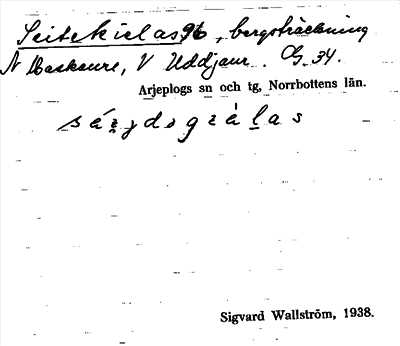 Seitekielas 96, bergsträckning
N Maskaure, V Uddjaur. G. 34.
Arjeplogs sn och tg, Norrbottens län.
Sigvard Wallström, 1938.